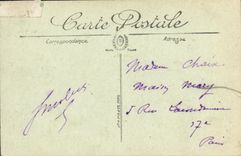 Carte Postale
Correspondance
Adresse
Madame Chaix
Maison Mary
5 Rue
17e
Paris